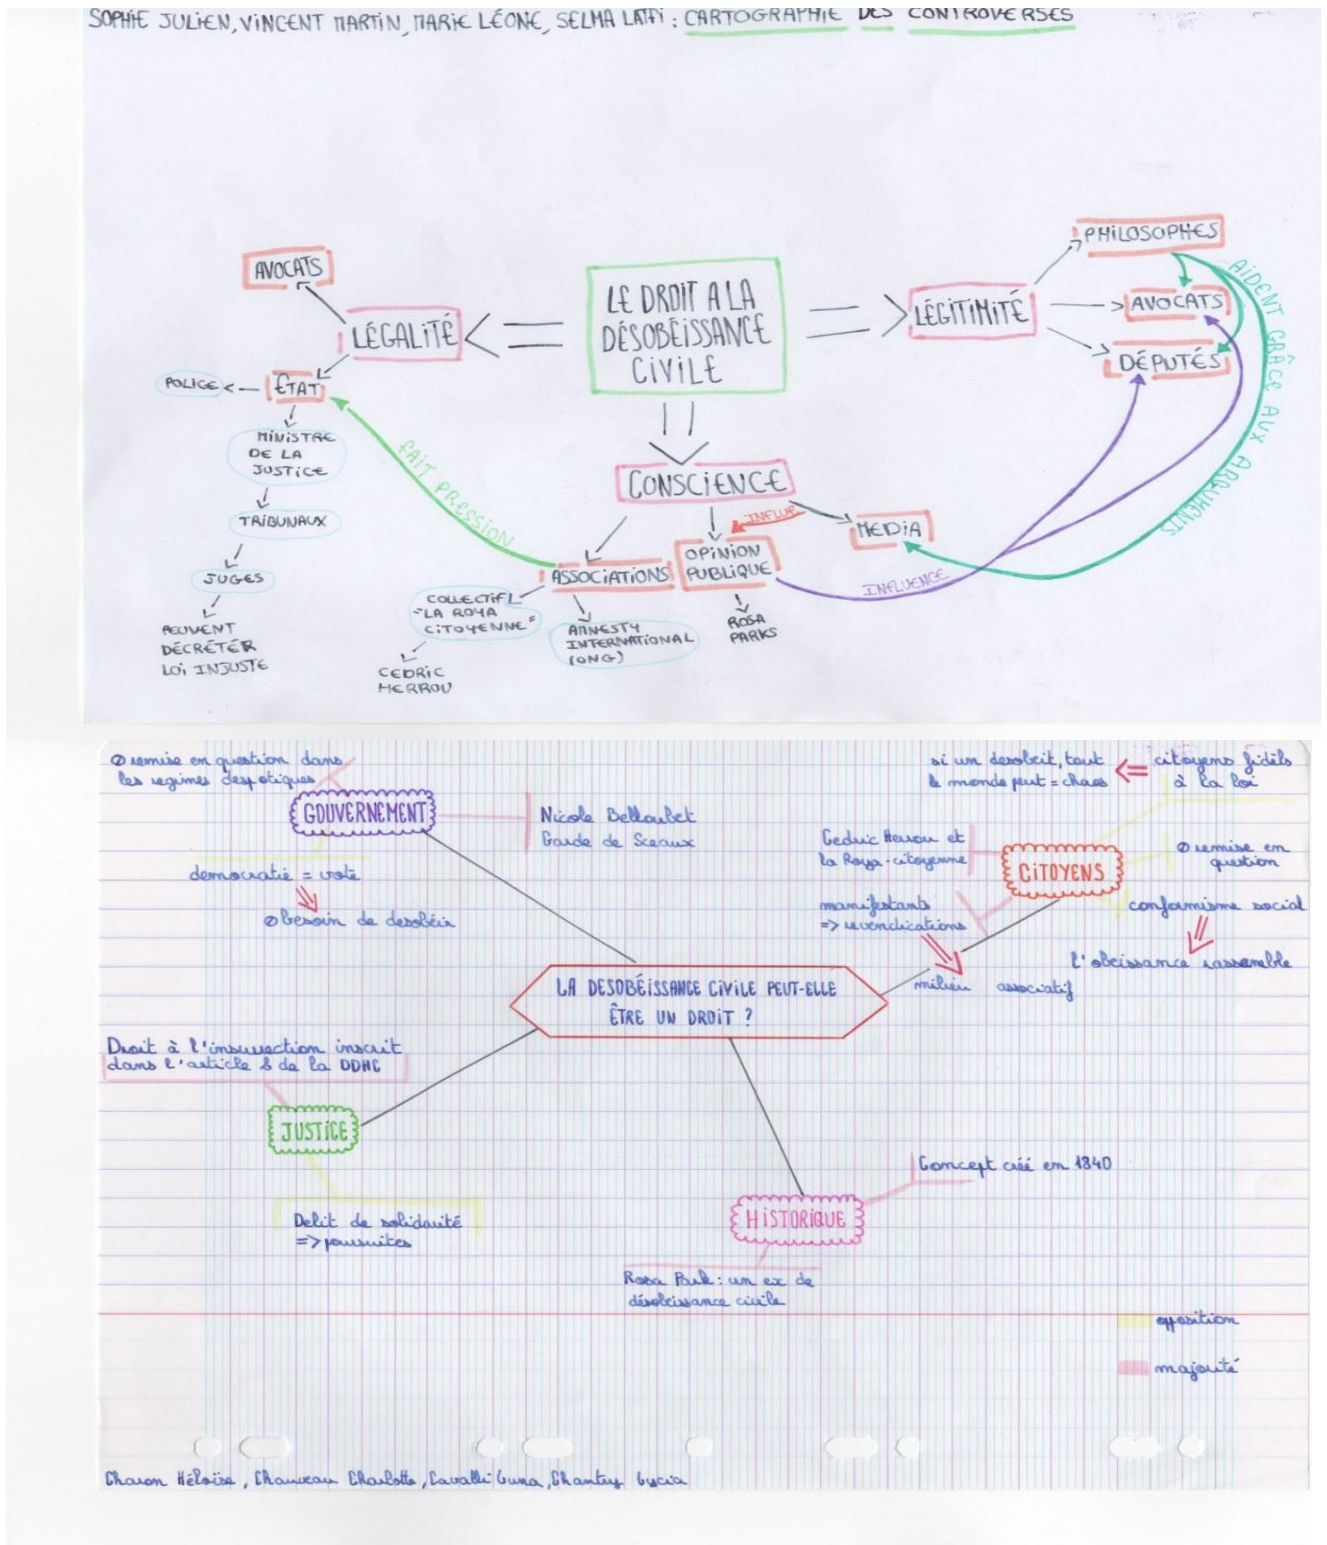 SOPHIE JULIEN, VINCENT MARTIN, MARIE LÉONE, SELMA LATFI : CARTOGRAPHIE DES CONTROVERSES
AVOCATS
LÉGALITÉ
POLICE
ÉTAT
MINISTRE
DE LA
JUSTICE
TRIBUNAUX
JUGES
PEUVENT
DÉCRÉTER
LOI INJUSTE
LE DROIT A LA
DÉSOBÉISSANCE
CIVILE
LÉGITIMITÉ
PHILOSOPHES
AVOCATS
DÉPUTÉS
AIDENT GRÂCE AUX ARGUMENTS
FAIT PRESSION
CONSCIENCE
INFLUE
MEDIA
ASSOCIATIONS
OPINION
PUBLIQUE
INFLUENCE
COLLECTIF
"LA ROYA
CITOYENNE"
CEDRIC
HERROU
AMNESTY
INTERNATIONAL
(ONG)
ROSA
PARKS
Ø remise en question dans
les regimes despotiques
GOUVERNEMENT
Nicole Belloubet
Garde de Sceaux
democratie = vote
Ø besoin de desobéir
si un desobeit, tout
le monde peut = chaos
citoyens fidèls
à la loi
Cedric Herrou et
la Roya-citoyenne
CITOYENS
Ø remise en
question
manifestants
=> revendications
conformisme social
l'obeissance rassemble
milieu associatif
LA DESOBÉISSANCE CIVILE PEUT-ELLE
ÊTRE UN DROIT ?
Droit à l'insurrection inscrit
dans l'article de la DDHC
JUSTICE
Delit de solidarité
=> poursuites
Concept créé en 1840
HISTORIQUE
Rosa Park : un ex de
désobeissance civile
opposition
majorité
Charon Héloïse, Chauveau Charlotte, Cavalli Luna, Chantry Lycia